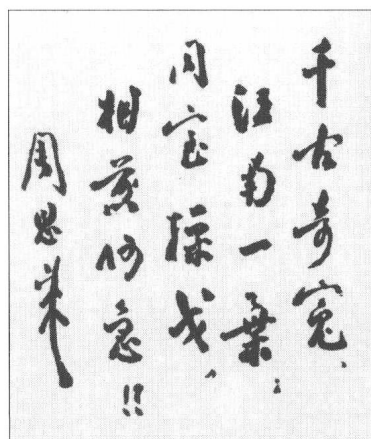 千古奇冤、
江南一葉；
同室操戈、
相煎何急!!
周恩来